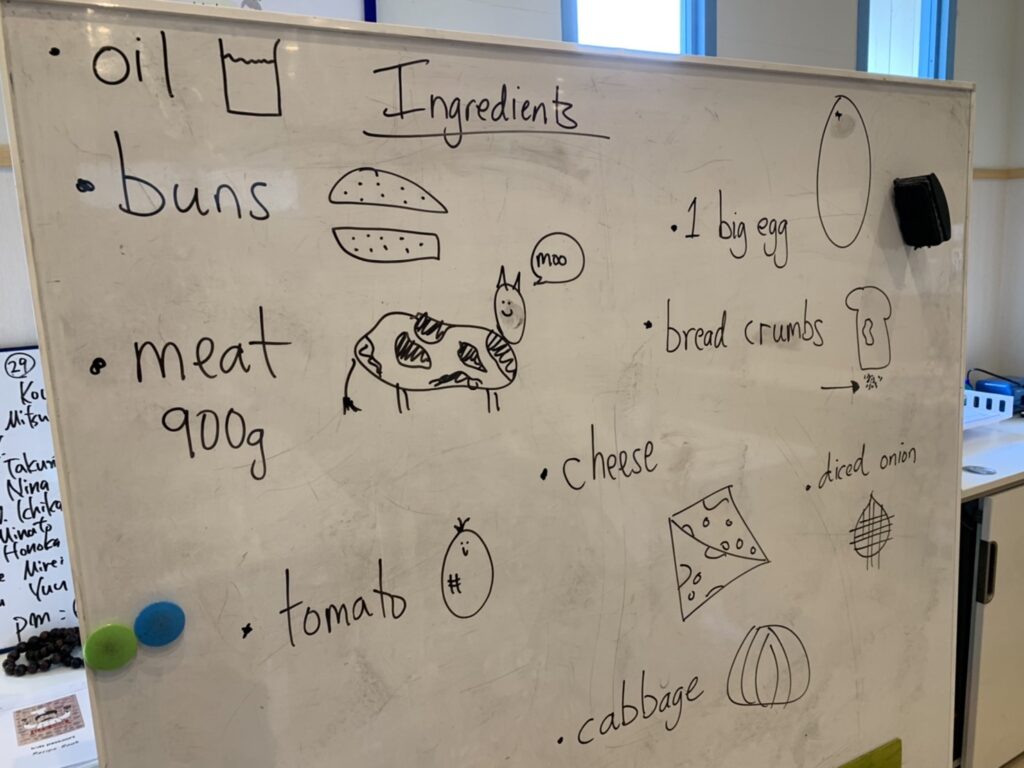 Ingredients
• oil
• buns
• meat
900g
moo
• tomato
• 1 big egg
• bread crumbs
• cheese
• diced onion
• cabbage
29
Mitsu
Takuri
Nina
Ichika
Minato
Honoka
Yuu
pm